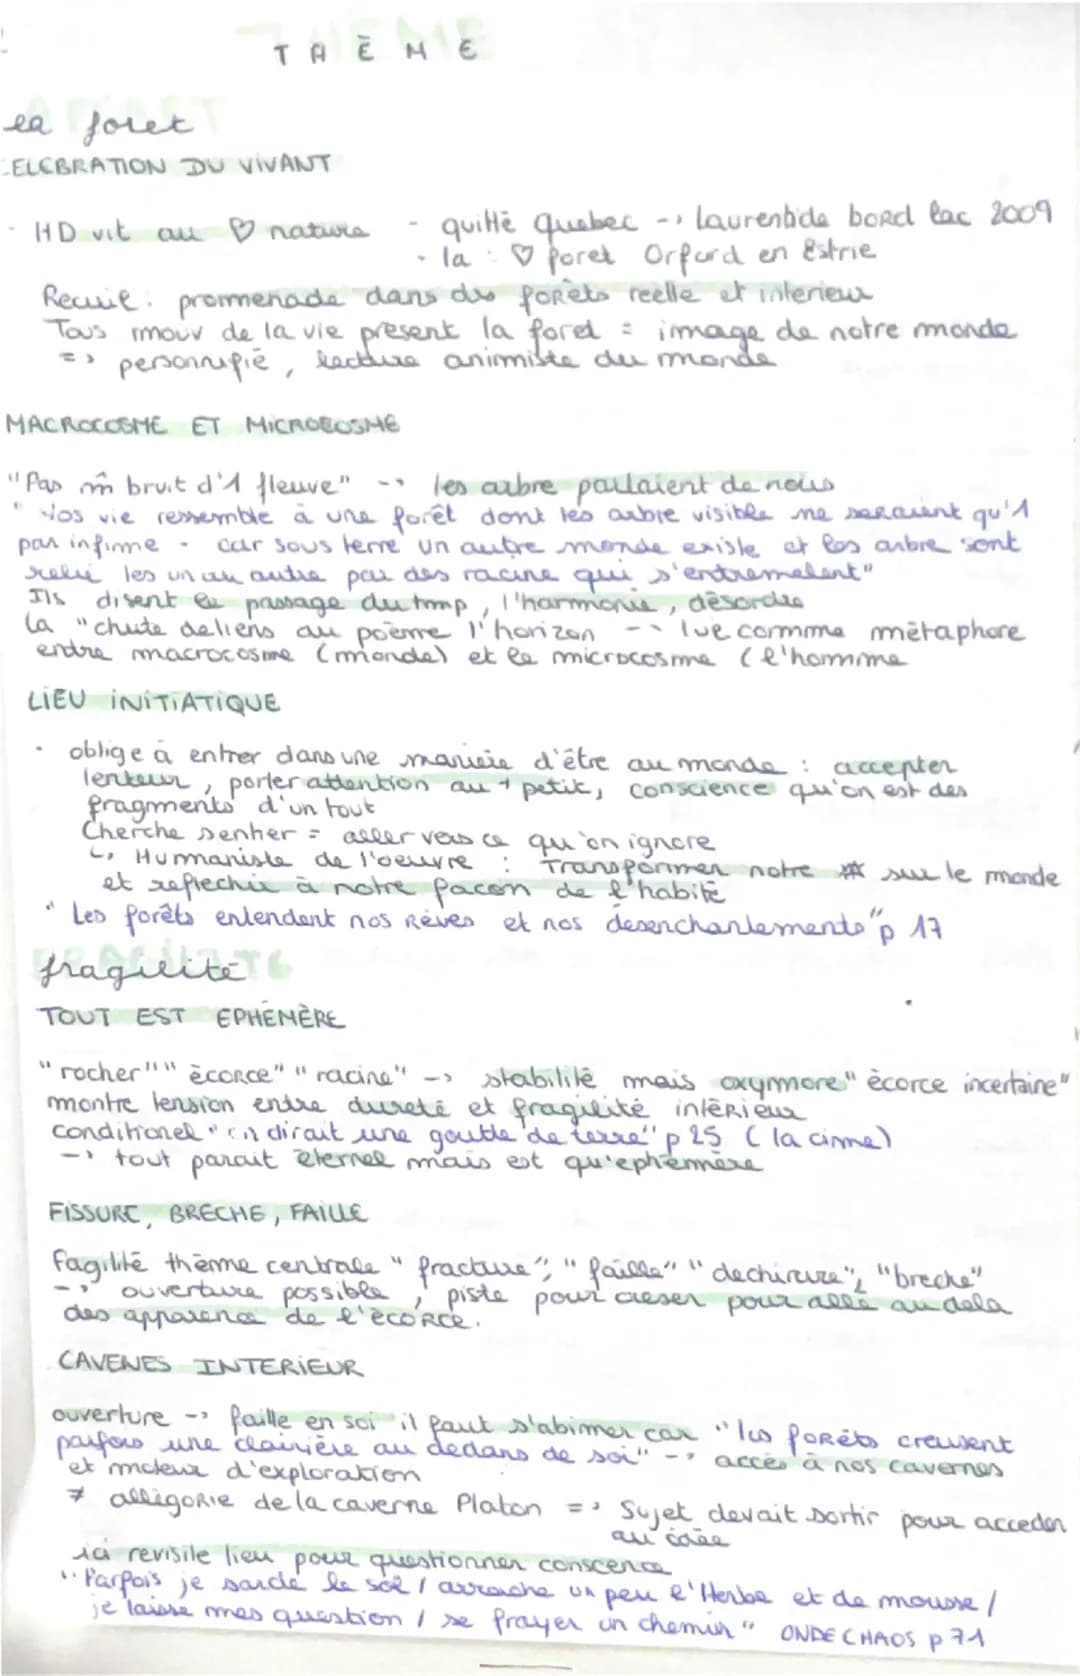 THÈME
la foret
CELEBRATION DU VIVANT
- HD vit au ♡ nature - quitté Quebec -> Laurentide bord lac 2009
- la : ♡ foret Orford en Estrie
Recueil : promenade dans des forêts reelle et interieur
Tous mouv de la vie present la foret = image de notre monde
=> personnifié, lecture animiste du monde
MACROCOSME ET MICROCOSME
"Pas m̂ bruit d'1 fleuve" -> les arbre parlaient de nous
"Nos vie ressemble à une forêt dont les arbre visible ne seraient qu'1
pan infime - car sous terre un autre monde existe et les arbre sont
relié les un au autre par des racine qui s'entremelent"
Ils disent le passage du tmp, l'harmonie, désordre
la "chute de liens au poème l'horizon -> lue comme métaphore
entre macrocosme (monde) et le microcosme (l'homme
LIEU INITIATIQUE
• oblige à entrer dans une manière d'être au monde : accepter
lenteur, porter attention au + petit, conscience qu'on est des
fragments d'un tout
Cherche sentier = aller vers ce qu'on ignore
↳ Humaniste de l'oeuvre : Transformer notre sur le monde
et reflechir à notre facon de l'habité
"Les forêts entendent nos Rêves et nos desenchantements" p 17
fragilité
TOUT EST EPHÉMÈRE
"rocher" "écorce" "racine" -> stabilité mais oxymore "écorce incertaine"
montre tension entre dureté et fragilité intérieur
conditionel "on dirait une goutte de terre" p 25 (la cime)
-> tout parait éternel mais est qu'ephémère
FISSURE, BRECHE, FAILLE
fagilité thème centrale "fracture", "faille" "dechirure", "breche"
-> ouverture possible, piste pour creser pour allé au dela
des apparence de l'écorce.
CAVENES INTERIEUR
ouverture -> faille en soi il faut s'abimer car "les forêts creusent
parfois une clairière au dedans de soi" -> accès à nos cavernes
et moteur d'exploration
≠ allégorie de la caverne Platon => Sujet devait sortir pour acceder
au idée
ici revisite lieu pour questionner conscence
"Parfois je sarde le sol / arrache un peu l'Herbe et de mousse /
je laisse mes question / se frayer un chemin" ONDE CHAOS p 71